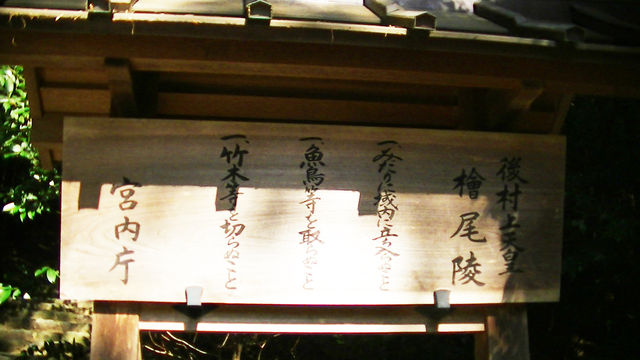 後村上天皇
檜尾陵
一、みだりに域内に立ち入らぬこと
一、魚鳥等を取らぬこと
一、竹木等を切らぬこと
宮内庁